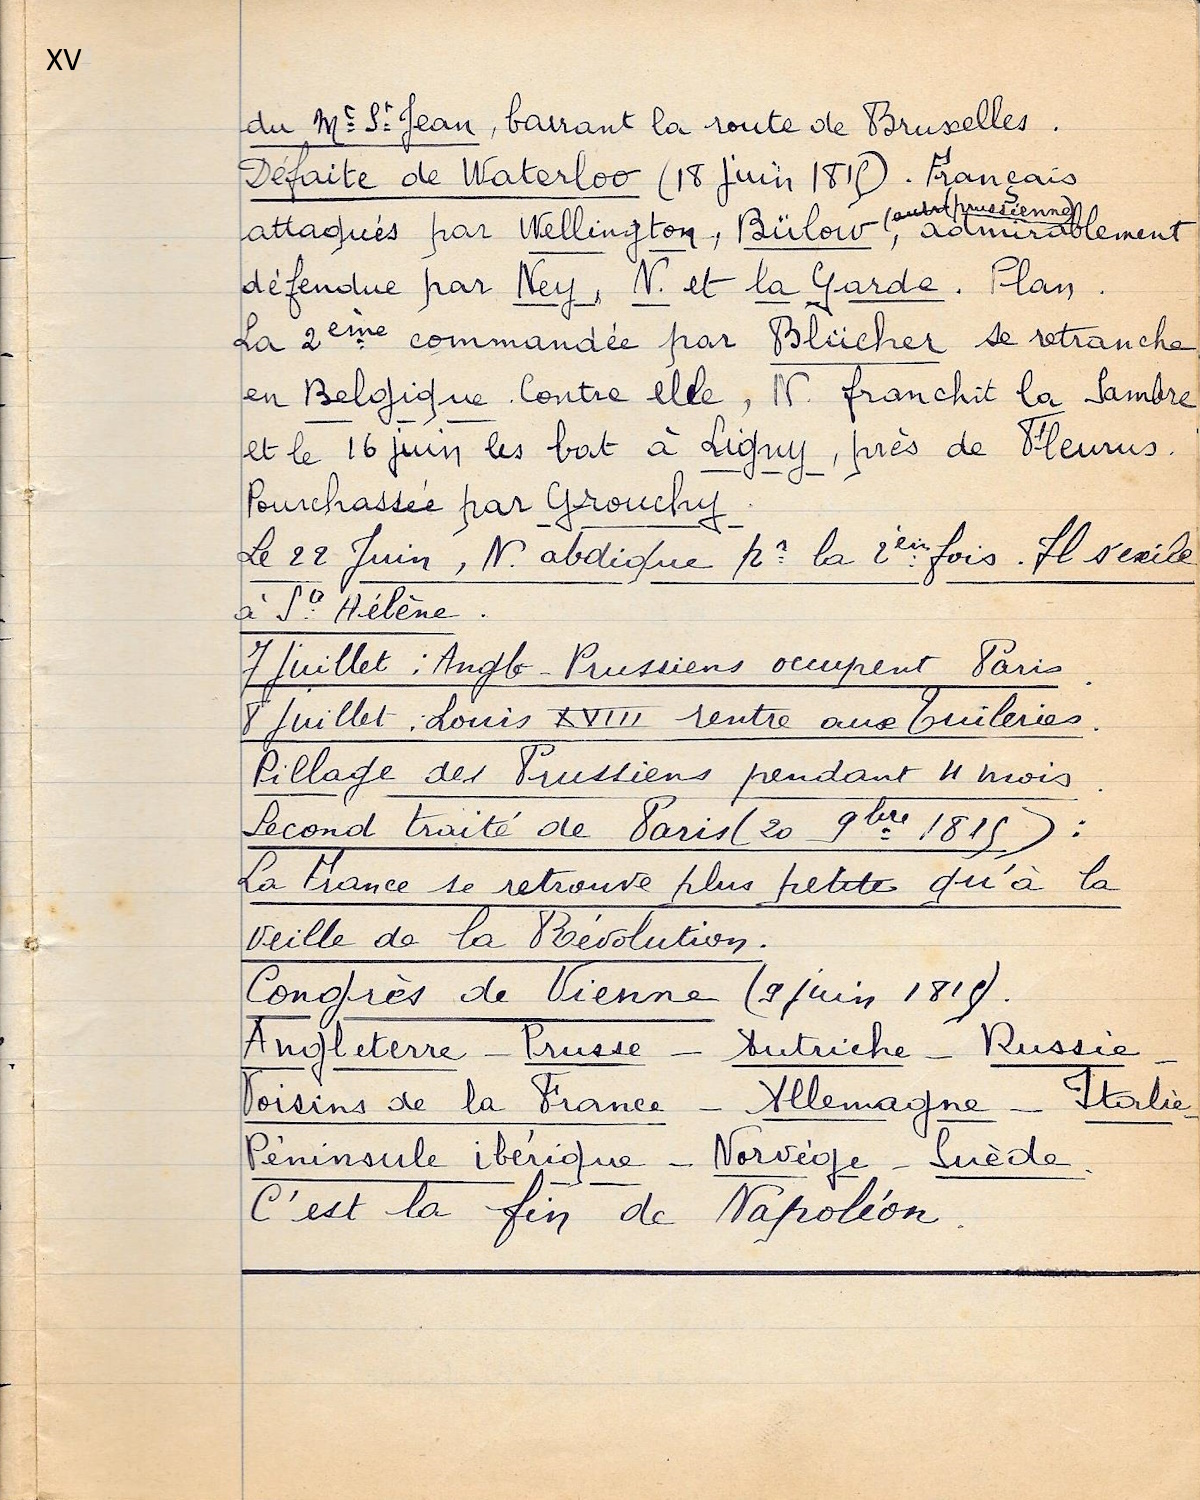 XV
du Mt St Jean, barrant la route de Bruxelles.
Défaite de Waterloo (18 Juin 1815). Français
(autre prussienne)
attaqués par Wellington, Bülow, admirablement
défendue par Ney, N. et la Garde. Plan.
La 2ème commandée par Blücher se retranche
en Belgique. Contre elle, N. franchit la Sambre
et le 16 juin les bat à Ligny, près de Fleurus.
Pourchassée par Grouchy.
Le 22 Juin, N. abdique pr la 2èm fois. Il s'exile
à Ste Hélène.
7 Juillet : Anglo-Prussiens occupent Paris.
8 Juillet : Louis XVIII rentre aux Tuileries.
Pillage des Prussiens pendant 4 mois.
Second traité de Paris (20 9bre 1815) :
La France se retrouve plus petite qu'à la
veille de la Révolution.
Congrès de Vienne (9 juin 1815).
Angleterre - Prusse - Autriche - Russie -
Voisins de la France - Allemagne - Italie -
Péninsule ibérique - Norvège - Suède.
C'est la fin de Napoléon.